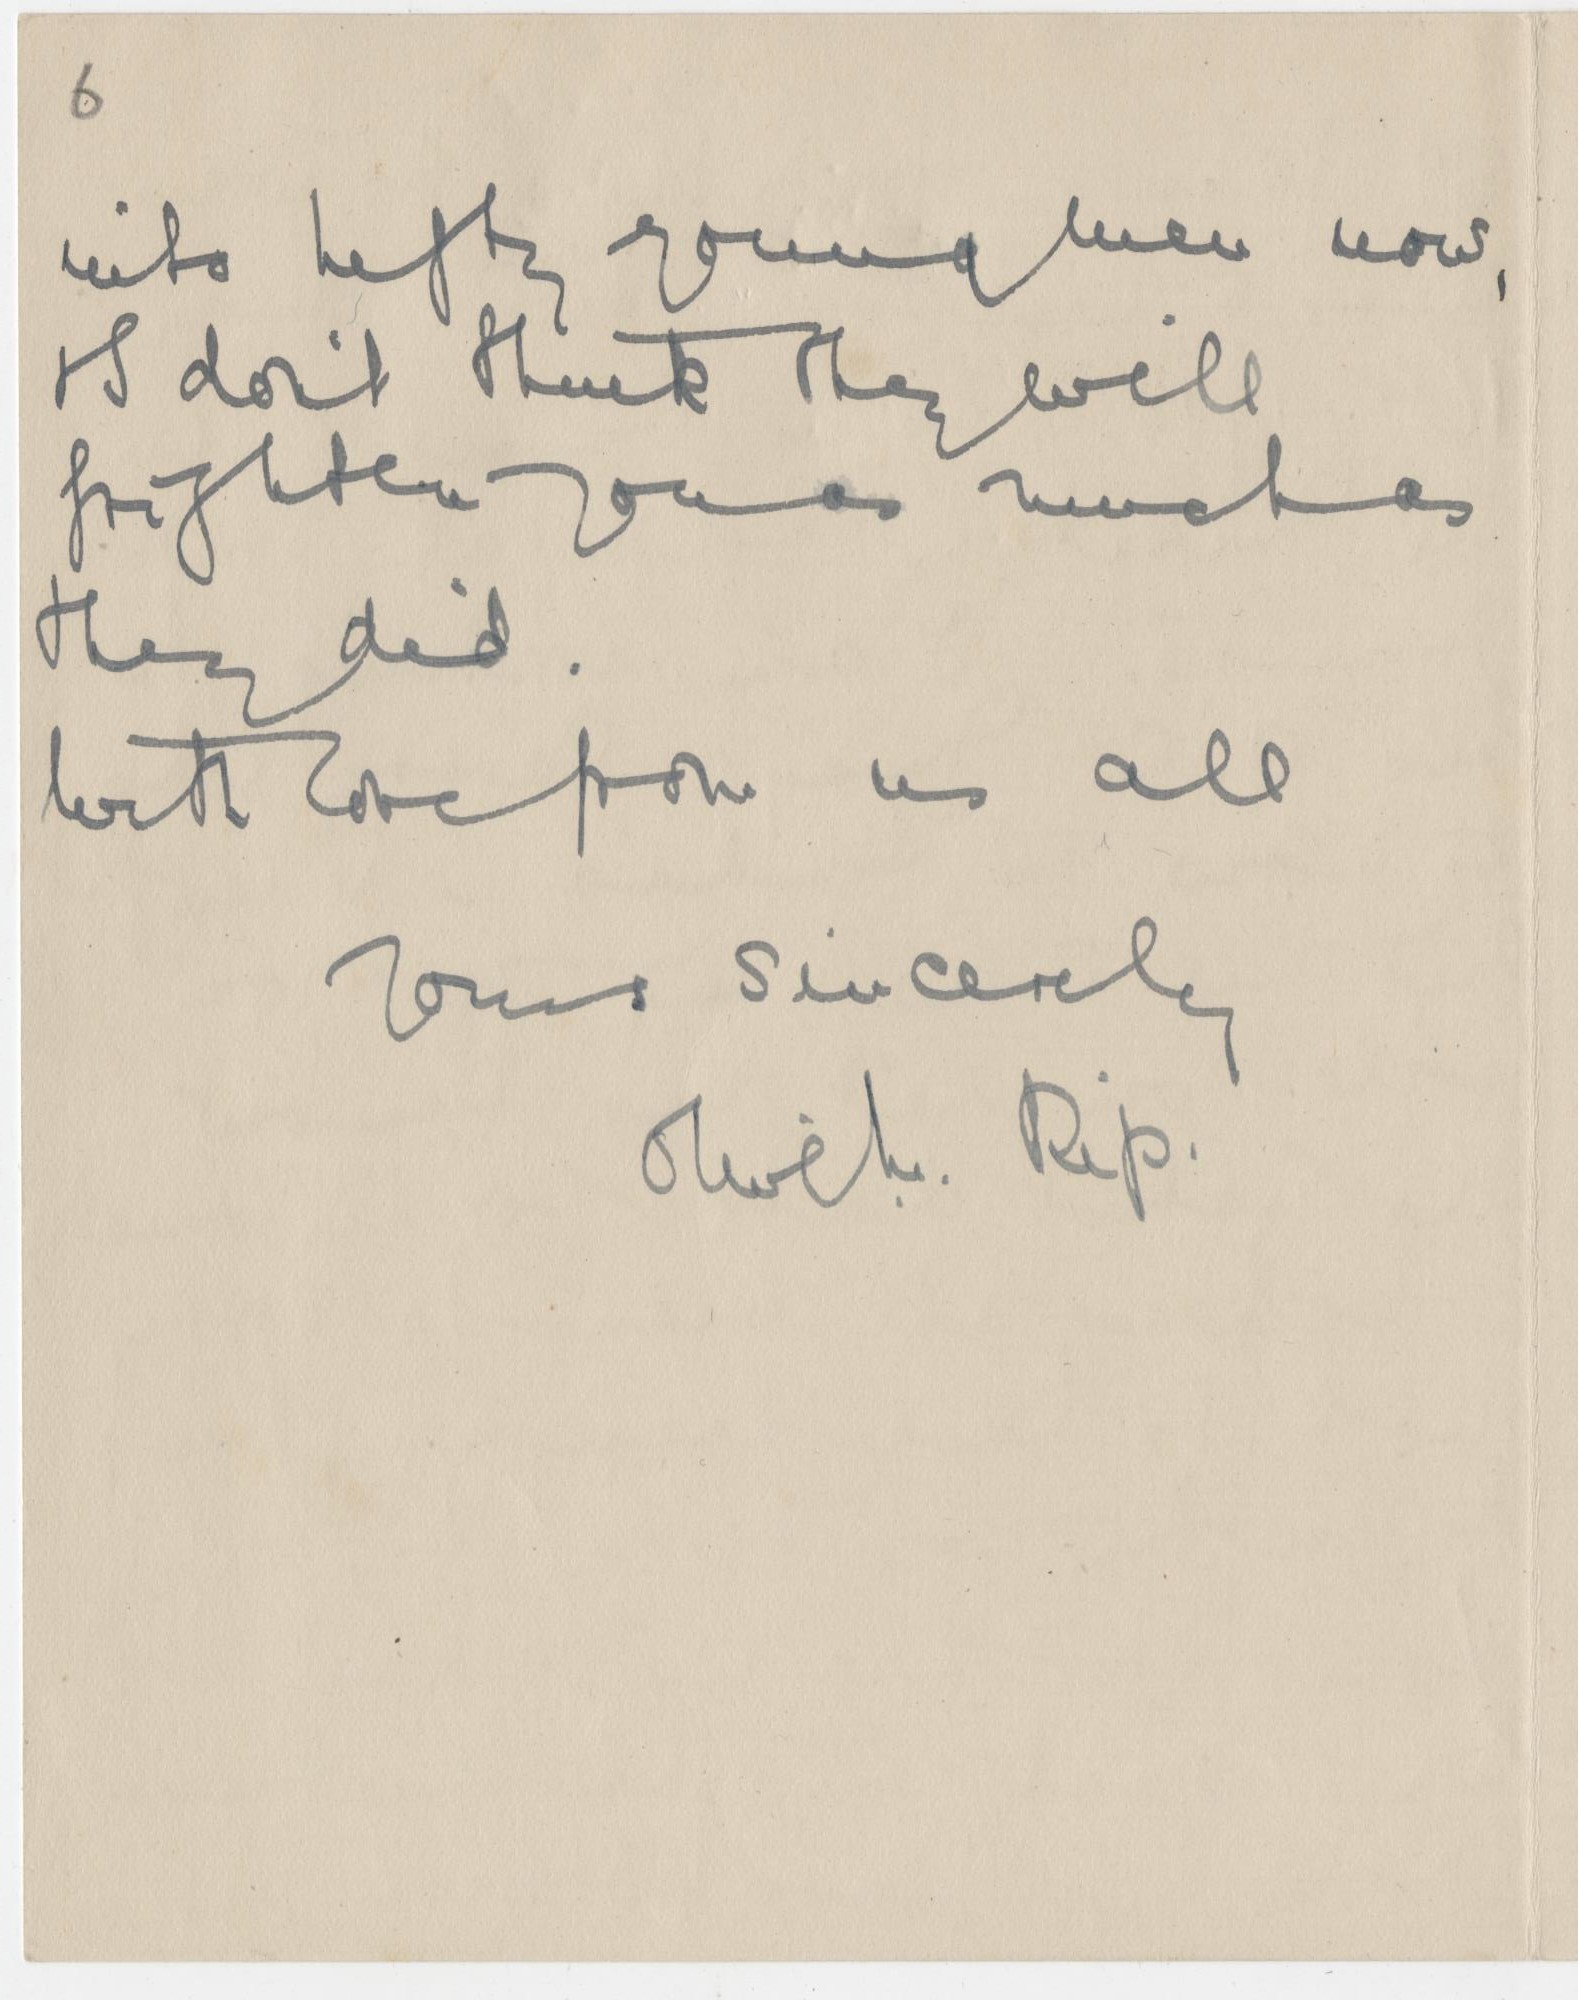 6
into hefty young men now,
+ I don't think they will
frighten you as much as
they did.
With love from us all
Yours sincerely
Rip.